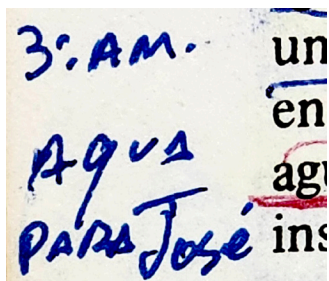 3:AM.
AqUA
PARA José
un
en
agu
ins